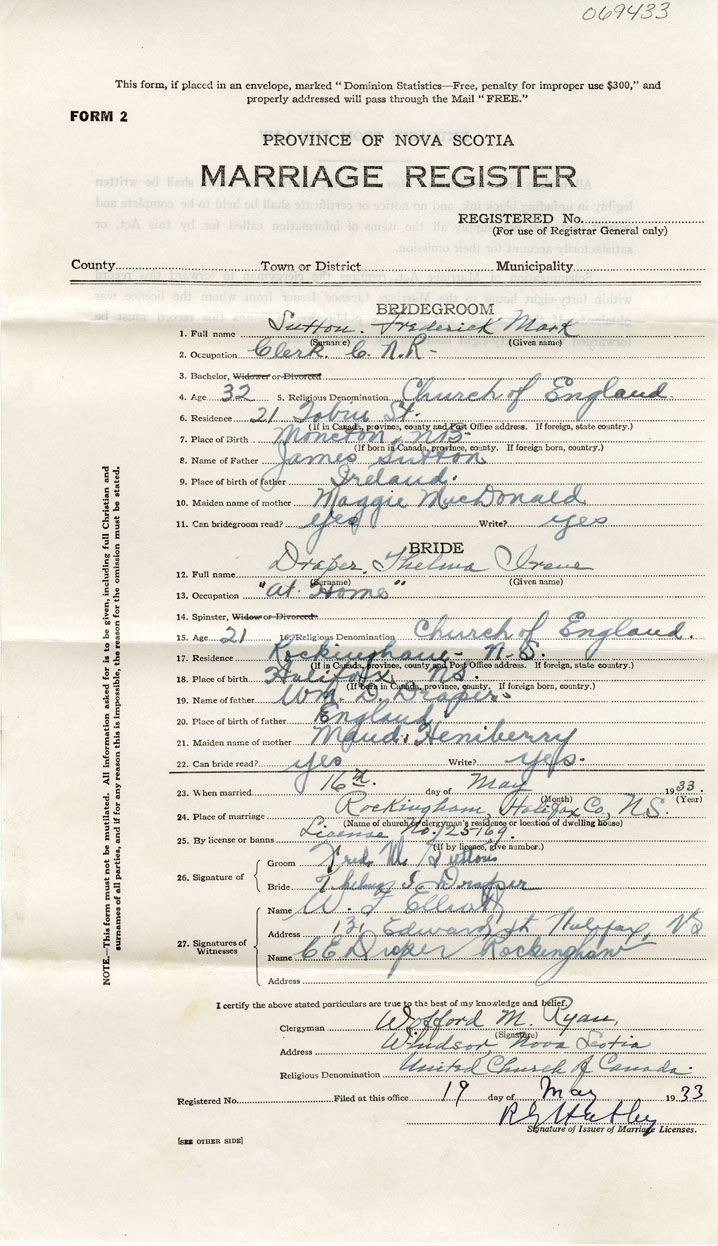 069433
This form, if placed in an envelope, marked " Dominion Statistics—Free, penalty for improper use $300," and
properly addressed will pass through the Mail "FREE."
FORM 2
PROVINCE OF NOVA SCOTIA
MARRIAGE REGISTER
REGISTERED No.
(For use of Registrar General only)
County Town or District Municipality
BRIDEGROOM
1. Full name Sutton. Frederick Mark
(Surname) (Given name)
2. Occupation Clerk. C. N. R-
3. Bachelor, Widower or Divorced
4. Age 32 5. Religious Denomination Church of England.
6. Residence 21 Tobin St.
(If in Canada, province, county and Post Office address. If foreign, state country.)
7. Place of Birth Moncton, N.B-
(If born in Canada, province, county. If foreign born, country.)
8. Name of Father James Sutton
9. Place of birth of father Ireland.
10. Maiden name of mother Maggie MacDonald
11. Can bridegroom read? yes Write? yes
BRIDE
12. Full name Draper. Thelma Irene
(Surname) (Given name)
13. Occupation "At Home"
14. Spinster, Widow or Divorced
15. Age 21 16. Religious Denomination Church of England.
17. Residence Rockingham- N.S.
(If in Canada, province, county and Post Office address. If foreign, state country.)
18. Place of birth Halifax, NS.
(If born in Canada, province, county. If foreign born, country.)
19. Name of father Wm. D. Draper.
20. Place of birth of father England
21. Maiden name of mother Maud Heniberry
22. Can bride read? yes Write? yes.
23. When married 16th. day of May 1933.
(Month) (Year)
24. Place of marriage Rockingham, Halifax Co, N.S.
(Name of church or clergyman's residence or location of dwelling house)
25. By license or banns License No. 125-169.
(If by licence, give number.)
26. Signature of
Groom Fred M. Sutton
Bride Thelma I. Draper
27. Signatures of Witnesses
Name W. F Elliott
Address 131 Edward St Halifax, NS
Name C E Draper Rockingham
Address
I certify the above stated particulars are true to the best of my knowledge and belief.
Clergyman Wofford M. Ryan,
(Signature)
Address Windsor Nova Scotia
Religious Denomination United Church of Canada.
Registered No. Filed at this office 19 day of May 1933
Signature of Issuer of Marriage Licenses.
[SEE OTHER SIDE]
NOTE.—This form must not be mutilated. All information asked for is to be given, including full Christian and
surnames of all parties, and if for any reason this is impossible, the reason for the omission must be stated.